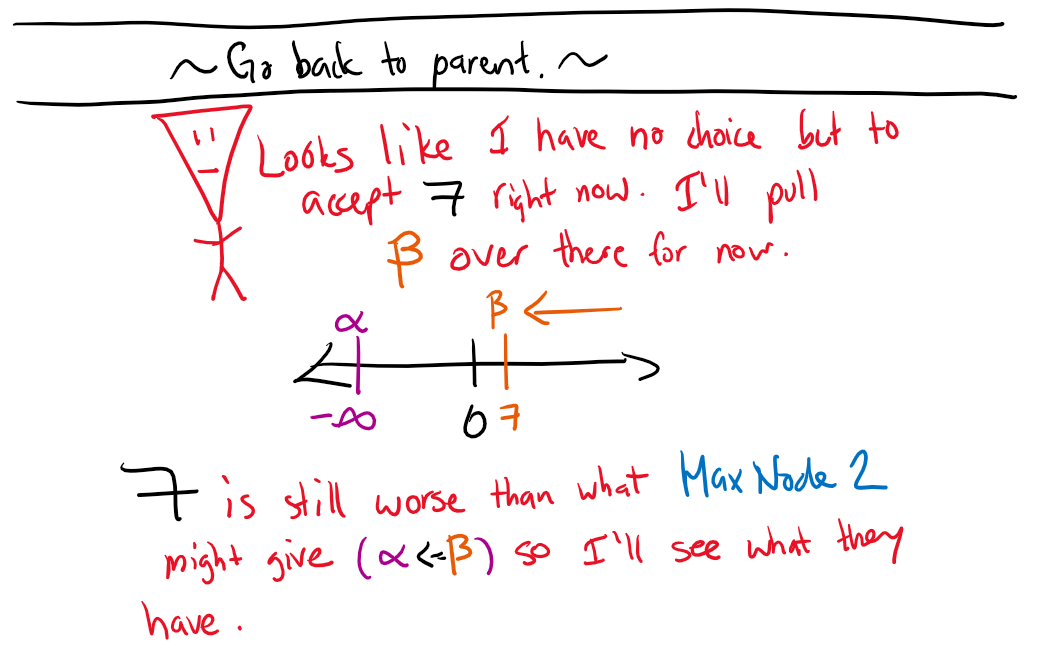 ~Go back to parent.~
Looks like I have no choice but to
accept 7 right now. I'll pull
β over there for now.
α β
-∞ 0 7
7 is still worse than what Max Node 2
might give (α<=β) so I'll see what they
have.